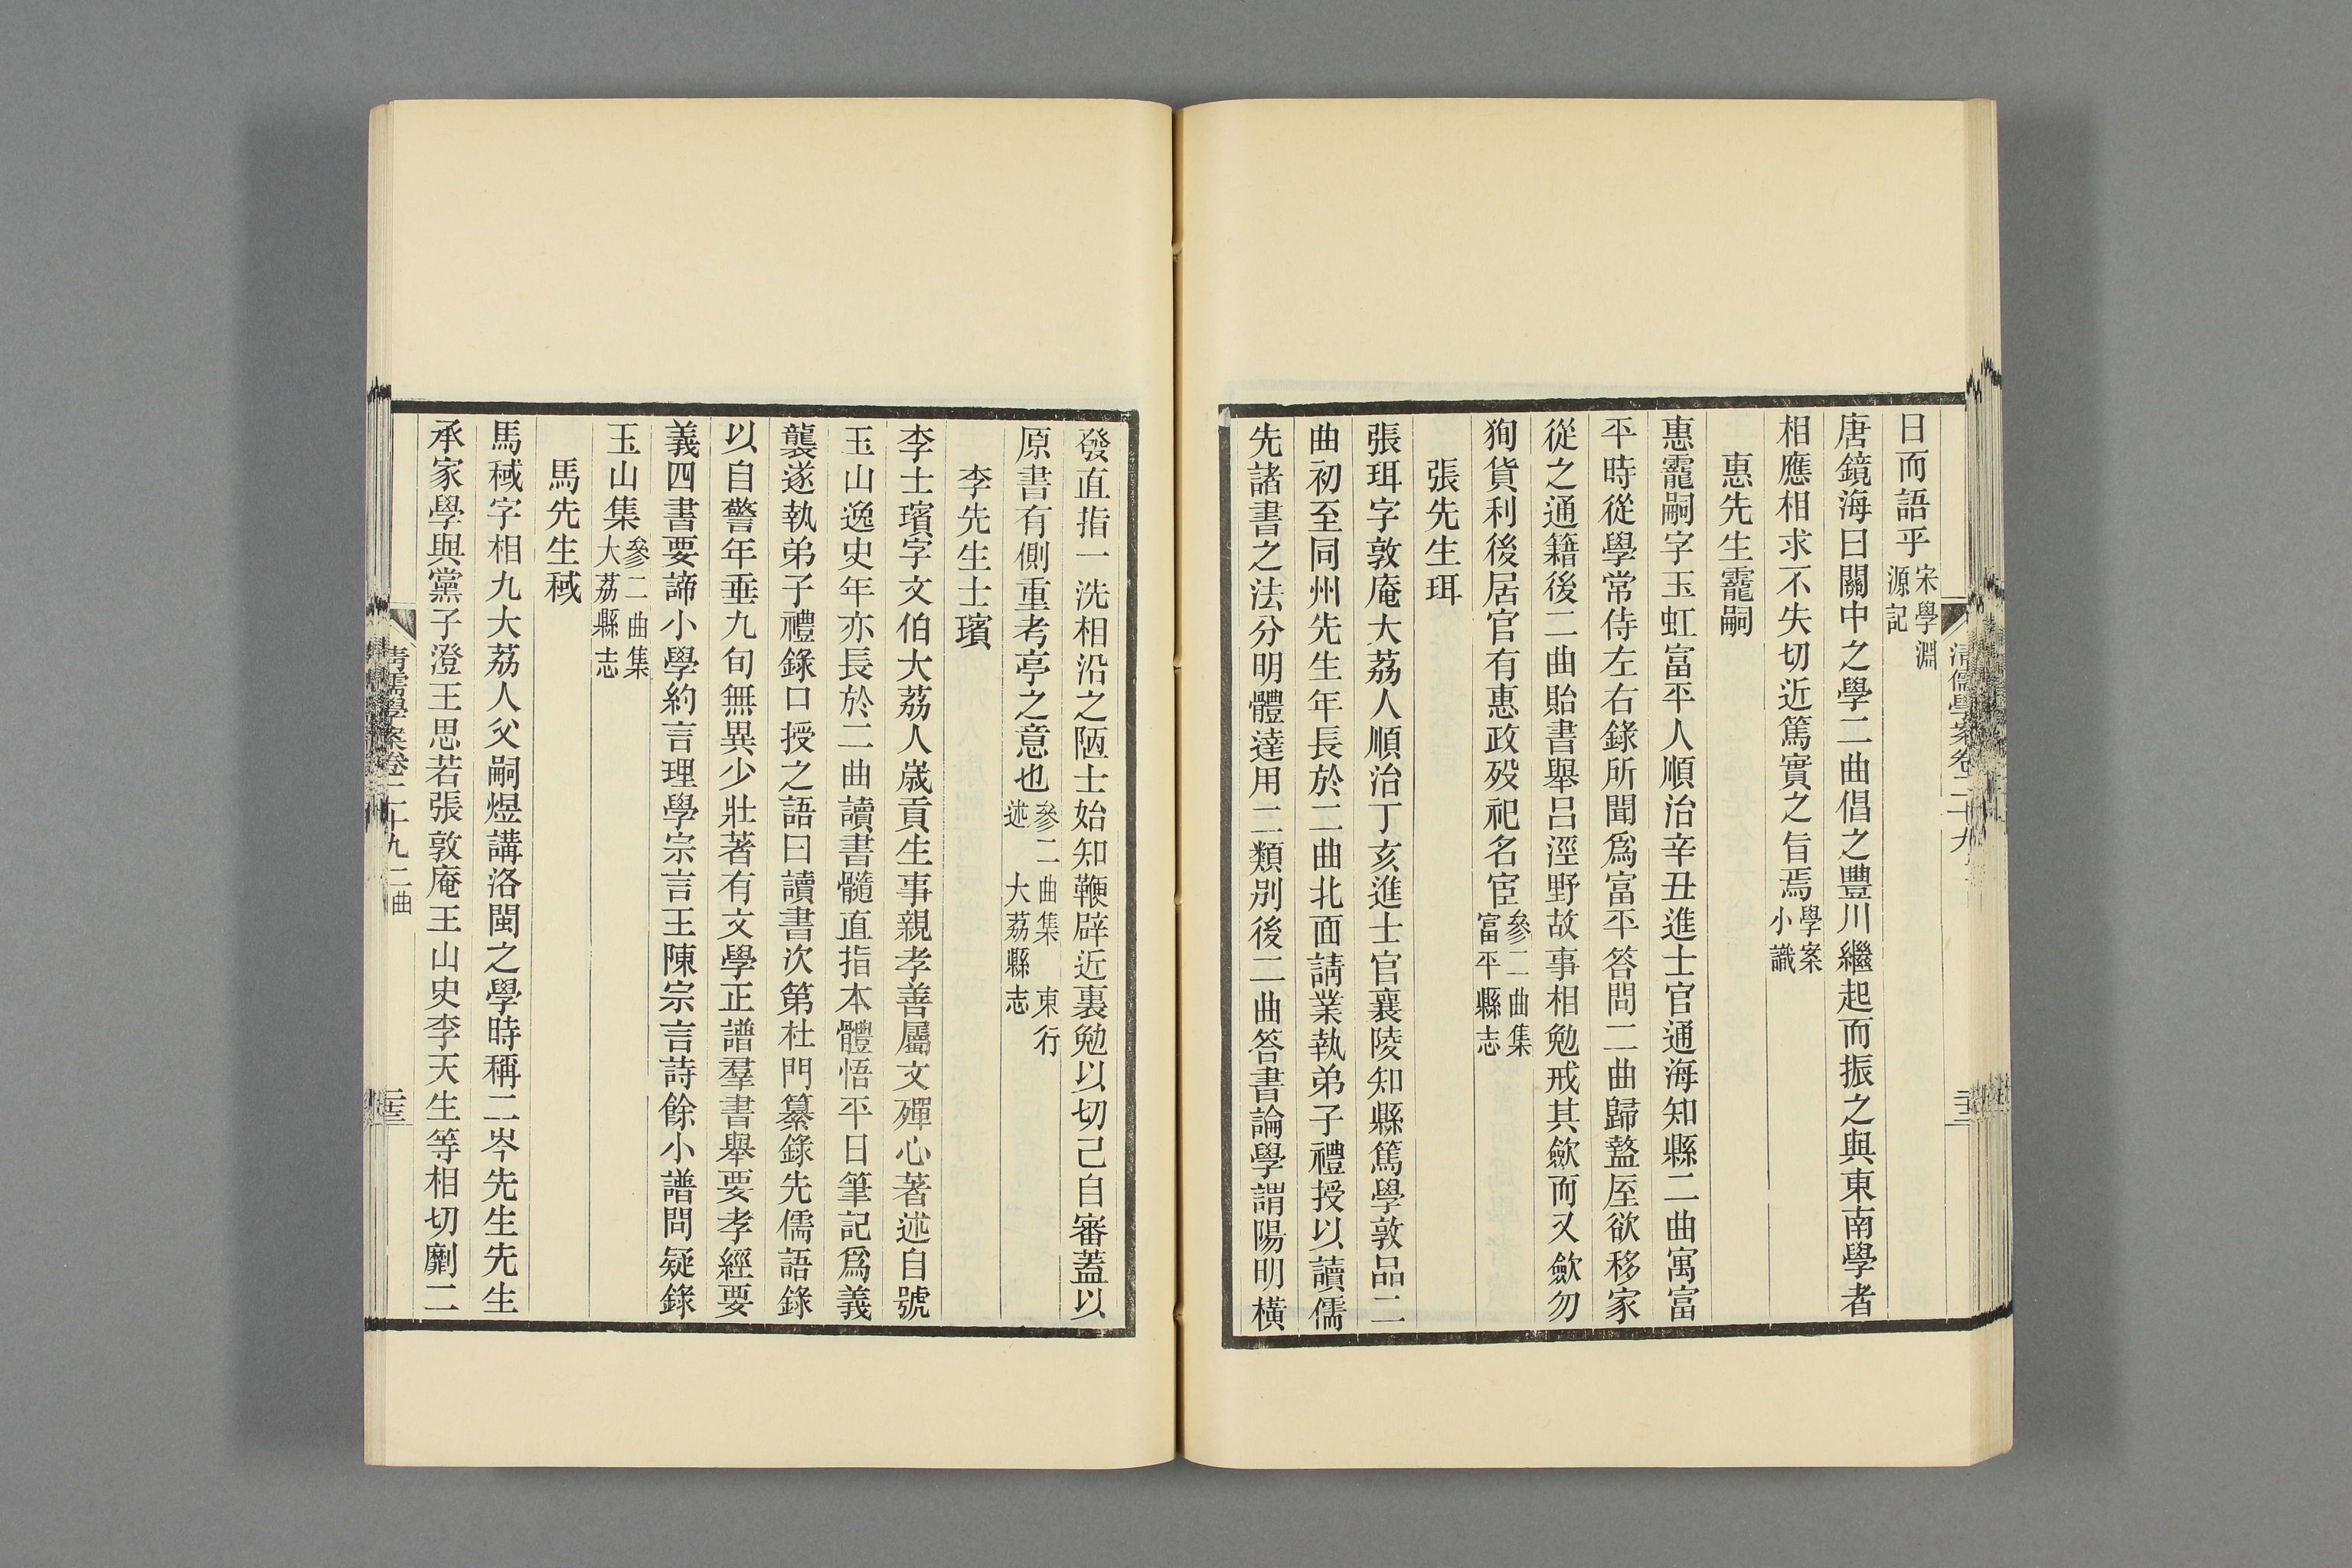 日而語乎宋學淵源記
唐鏡海曰關中之學二曲倡之豐川繼起而振之與東南學者
相應相求不失切近篤實之旨焉學案小識
惠先生靇嗣
惠靇嗣字玉虹富平人順治辛丑進士官通海知縣二曲寓富
平時從學常侍左右錄所聞爲富平答問二曲歸盩厔欲移家
從之通籍後二曲貽書舉呂涇野故事相勉戒其歛而又歛勿
狥貨利後居官有惠政歿祀名宦參二曲集富平縣志
張先生珥
張珥字敦庵大荔人順治丁亥進士官襄陵知縣篤學敦品二
曲初至同州先生年長於二曲北面請業執弟子禮授以讀儒
先諸書之法分明體達用二類別後二曲答書論學謂陽明橫
清儒學案卷二十九
發直指一洗相沿之陋士始知鞭辟近裏勉以切己自審蓋以
原書有側重考亭之意也參二曲集 東行述 大荔縣志
李先生士璸
李士璸字文伯大荔人歲貢生事親孝善屬文殫心著述自號
玉山逸史年亦長於二曲讀書髓直指本體悟平日筆記爲義
襲遂執弟子禮錄口授之語曰讀書次第杜門纂錄先儒語錄
以自警年垂九旬無異少壯著有文學正譜羣書舉要孝經要
義四書要諦小學約言理學宗言王陳宗言詩餘小譜問疑錄
玉山集參二曲集大荔縣志
馬先生稢
馬稢字相九大荔人父嗣煜講洛閩之學時稱二岑先生先生
承家學與黨子澄王思若張敦庵王山史李天生等相切劘二
清儒學案卷二十九 二曲